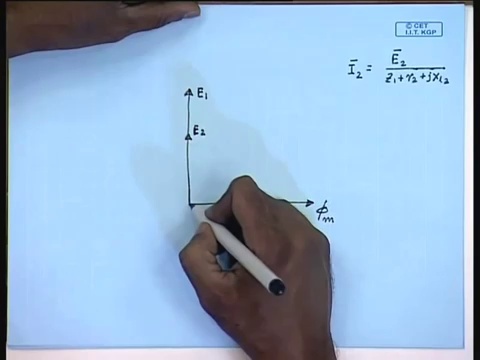 © CET
I.I.T. KGP
Ī₂ = Ē₂ / z₁ + r₂ + jx₁₂
E₁
E₂
ϕₘ